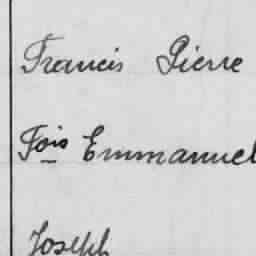 Francis Pierre
Fois Emmanuel
Joseph